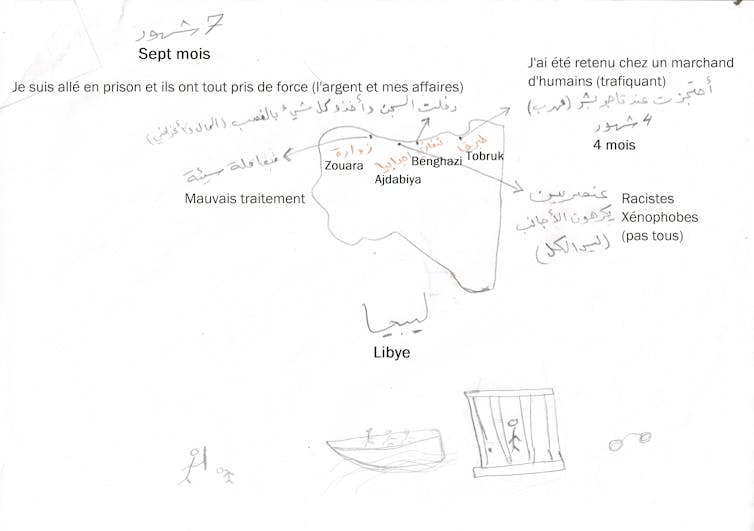 7 شهور
Sept mois
Je suis allé en prison et ils ont tout pris de force (l'argent et mes affaires)
دخلت السجن وأخذو كل شيئ بالغصب (المال وأغراضي)
J'ai été retenu chez un marchand
d'humains (trafiquant)
أحتجزت عند تاجر بشر (مهرب)
4 شهور
4 mois
زوارة
Zouara
اجدابيا
Ajdabiya
بنغازي
Benghazi
طبرق
Tobruk
معاملة سيئة
Mauvais traitement
عنصريين
يكرهون الأجانب
(ليس الكل)
Racistes
Xénophobes
(pas tous)
ليبيا
Libye